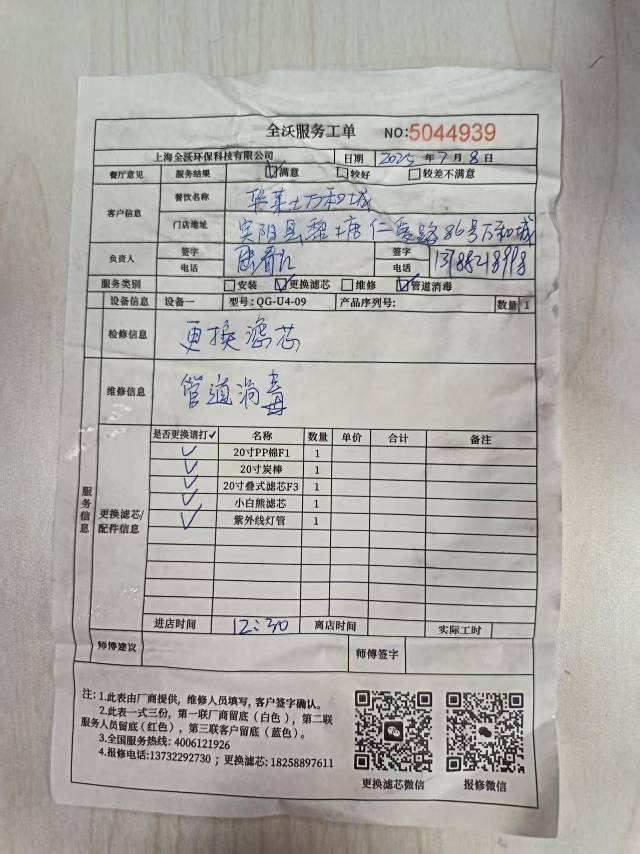 全沃服务工单 NO:5044939
上海全沃环保科技有限公司 日期 2025年7月8日
餐厅意见 服务结果 ☑满意 □较好 □较差不满意
客户信息 餐饮名称 华莱士万和城
门店地址 宾阳县黎塘仁爱路86号万和城
负责人 签字 签字
电话 电话
服务类别 □安装 ☑更换滤芯 □维修 ☑管道消毒
设备信息 设备一 型号: QG-U4-09 产品序列号: 数量 1
检修信息 更换滤芯
维修信息 管道消毒
服务信息
更换滤芯/配件信息
是否更换请打✓ 名称 数量 单价 合计 备注
✓ 20寸PP棉F1 1
✓ 20寸炭棒 1
✓ 20寸叠式滤芯F3 1
✓ 小白熊滤芯 1
✓ 紫外线灯管 1
进店时间 12:30 离店时间 实际工时
师傅建议 师傅签字
注: 1.此表由厂商提供, 维修人员填写, 客户签字确认。
2.此表一式三份, 第一联厂商留底 (白色), 第二联
服务人员留底 (红色), 第三联客户留底 (蓝色)。
3.全国服务热线: 4006121926
4.报修电话:13732292730 ; 更换滤芯: 18258897611
更换滤芯微信 报修微信